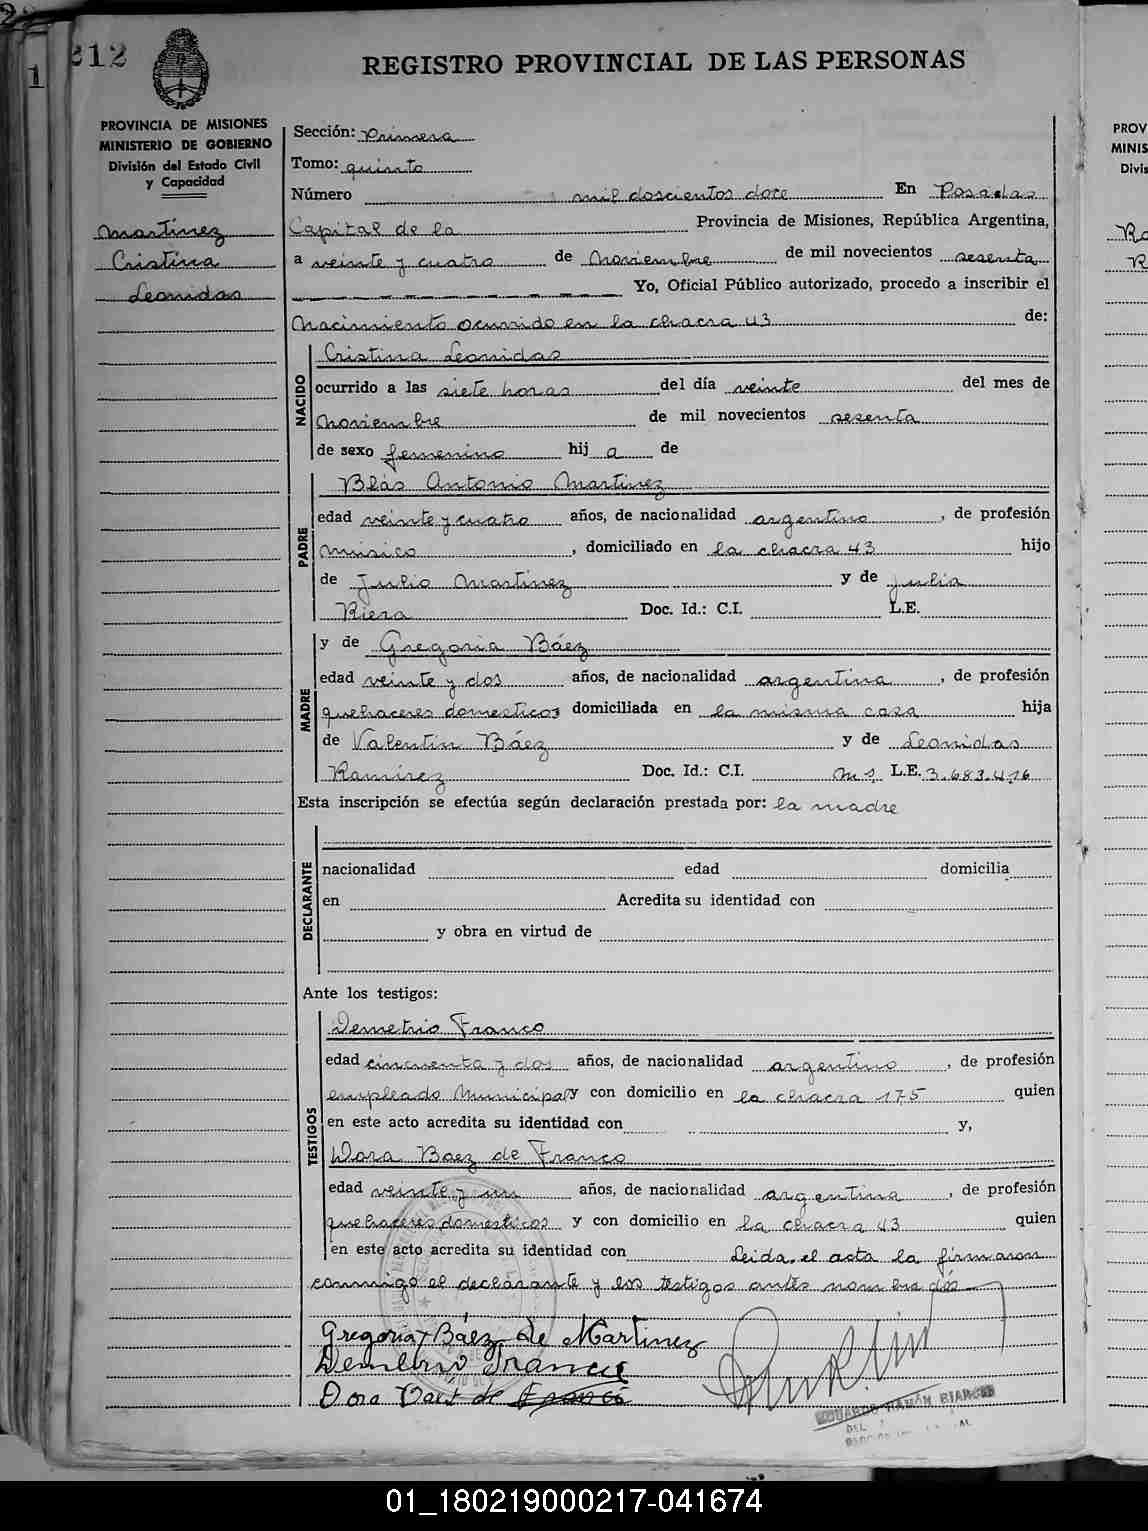 212
REGISTRO PROVINCIAL DE LAS PERSONAS
PROVINCIA DE MISIONES
MINISTERIO DE GOBIERNO
División del Estado Civil
y Capacidad
Martínez
Cristina
Leonidas
Sección: Primera
Tomo: quinto
Número mil doscientos doce En Posadas
Capital de la Provincia de Misiones, República Argentina,
a veinte y cuatro de Noviembre de mil novecientos sesenta
Yo, Oficial Público autorizado, procedo a inscribir el
Nacimiento ocurrido en la chacra 43 de:
NACIDO
Cristina Leonidas
ocurrido a las siete horas del día veinte del mes de
Noviembre de mil novecientos sesenta
de sexo femenino hij a de
PADRE
Blás Antonio Martinez
edad veinte y cuatro años, de nacionalidad argentino, de profesión
músico, domiciliado en la chacra 43 hijo
de Julio Martinez y de Julia
Riera Doc. Id.: C.I. L.E.
MADRE
y de Gregoria Báez
edad veinte y dos años, de nacionalidad argentina, de profesión
quehaceres domesticos domiciliada en la misma casa hija
de Valentín Báez y de Leonidas
Ramírez Doc. Id.: C.I. L.E. 3.683.416
Esta inscripción se efectúa según declaración prestada por: la madre
DECLARANTE
nacionalidad edad domicilia
en Acredita su identidad con
y obra en virtud de
Ante los testigos:
TESTIGOS
Demetrio Franco
edad cincuenta y dos años, de nacionalidad argentino, de profesión
empleado Municipal y con domicilio en la chacra 175 quien
en este acto acredita su identidad con y,
Dora Baez de Franco
edad veinte y un años, de nacionalidad argentina, de profesión
quehaceres domesticos y con domicilio en la chacra 43 quien
en este acto acredita su identidad con Leida el acta la firmaron
conmigo el declarante y los testigos antes nombrados
Gregoria Báez de Martinez
Demetrio Franco
Dora Baez de Franco
RAMÓN
PROV
MINIS
Divis
01_180219000217-041674